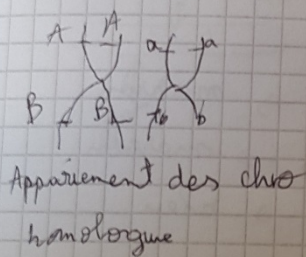 A A a a
B B b b
Appariement des chro
homologue